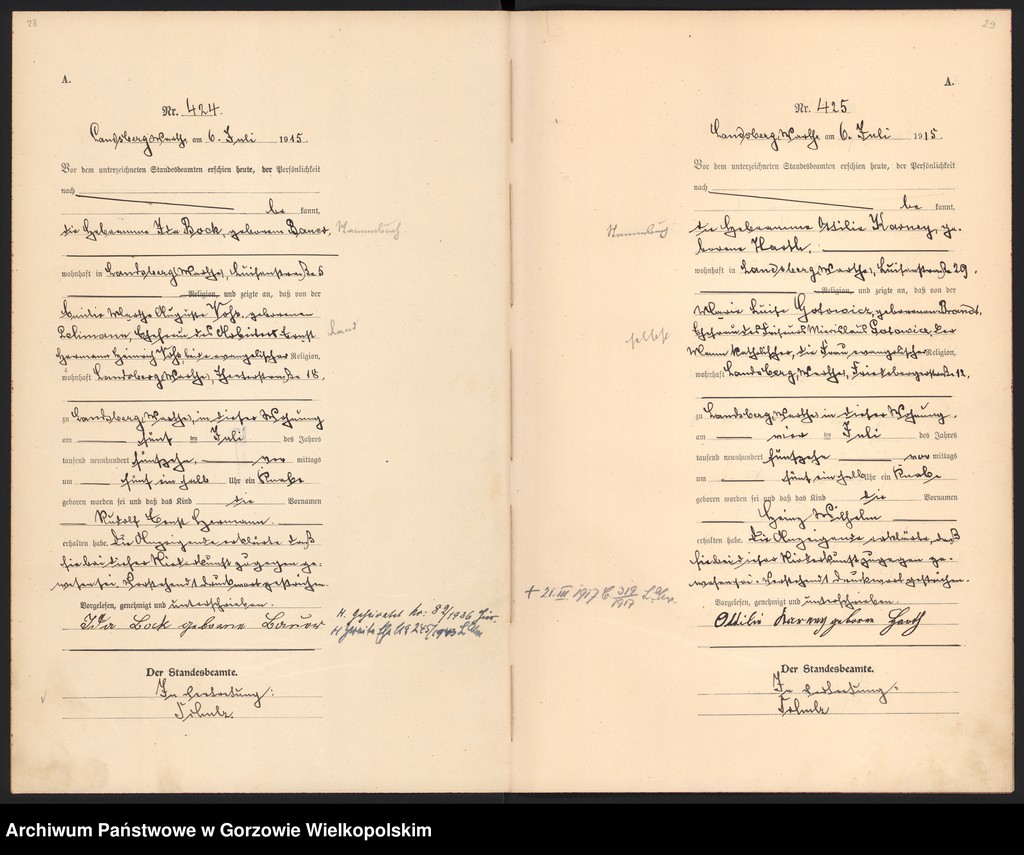 28
A.
Nr. 424.
Landsberg, Warthe am 6. Juli 1915.
Vor dem unterzeichneten Standesbeamten erschien heute, der Persönlichkeit
nach
be kannt,
die Hebamme Ida Bock, geborene Bauer,
Stammbuch
wohnhaft in Landsberg, Warthe, Luisenstraße 5
Religion, und zeigte an, daß von der
Martha Auguste geborenen
Ehefrau des Arbeiters Ernst
Land
Hermann Heinrich beide evangelischer Religion,
wohnhaft Landsberg, Warthe, Theaterstraße 18,
zu Landsberg, Warthe, in dieser Wohnung
am fünf ten Juli des Jahres
tausend neunhundert fünfzehn, vor mittags
um fünf ein halb Uhr ein Knabe
geboren worden sei und daß das Kind die Vornamen
Rudolf Ernst Hermann
erhalten habe. Die Anzeigende erklärte, daß
sie bei dieser Niederkunft zugegen ge-
wesen sei. Vorstehend 1 Druckwort gestrichen.
Vorgelesen, genehmigt und unterschrieben.
Ida Bock geborene Bauer
H. Geheiratet Nr: 89/1936 hier.
H Zweite Ehe 245/1943
Der Standesbeamte.
In Vertretung:
29
A.
Nr. 425
Landsberg, Warthe am 6. Juli 1915.
Vor dem unterzeichneten Standesbeamten erschien heute, der Persönlichkeit
nach
be kannt,
die Hebamme Ottilie Karney, ge-
Stammbuch
borene Harth,
wohnhaft in Landsberg, Warthe, Luisenstraße 29,
Religion, und zeigte an, daß von der
Marie Luise geborenen Brandt,
Ehefrau des Friseurs der
selbst
Mann katholischer, die Frau evangelischer Religion,
wohnhaft Landsberg, Warthe, Friedebergerstraße 12,
zu Landsberg, Warthe, in dieser Wohnung,
am vier ten Juli des Jahres
tausend neunhundert fünfzehn vor mittags
um fünf ein halb Uhr ein Knabe
geboren worden sei und daß das Kind die Vornamen
Heinz Wilhelm
erhalten habe. Die Anzeigende erklärte, daß
sie bei dieser Niederkunft zugegen ge-
wesen sei. Vorstehend 1 Druckwort gestrichen.
Vorgelesen, genehmigt und unterschrieben.
+ 21. III 1917 319/1917
Ottilie Karney geborene Harth
Der Standesbeamte.
In Vertretung:
Archiwum Państwowe w Gorzowie Wielkopolskim